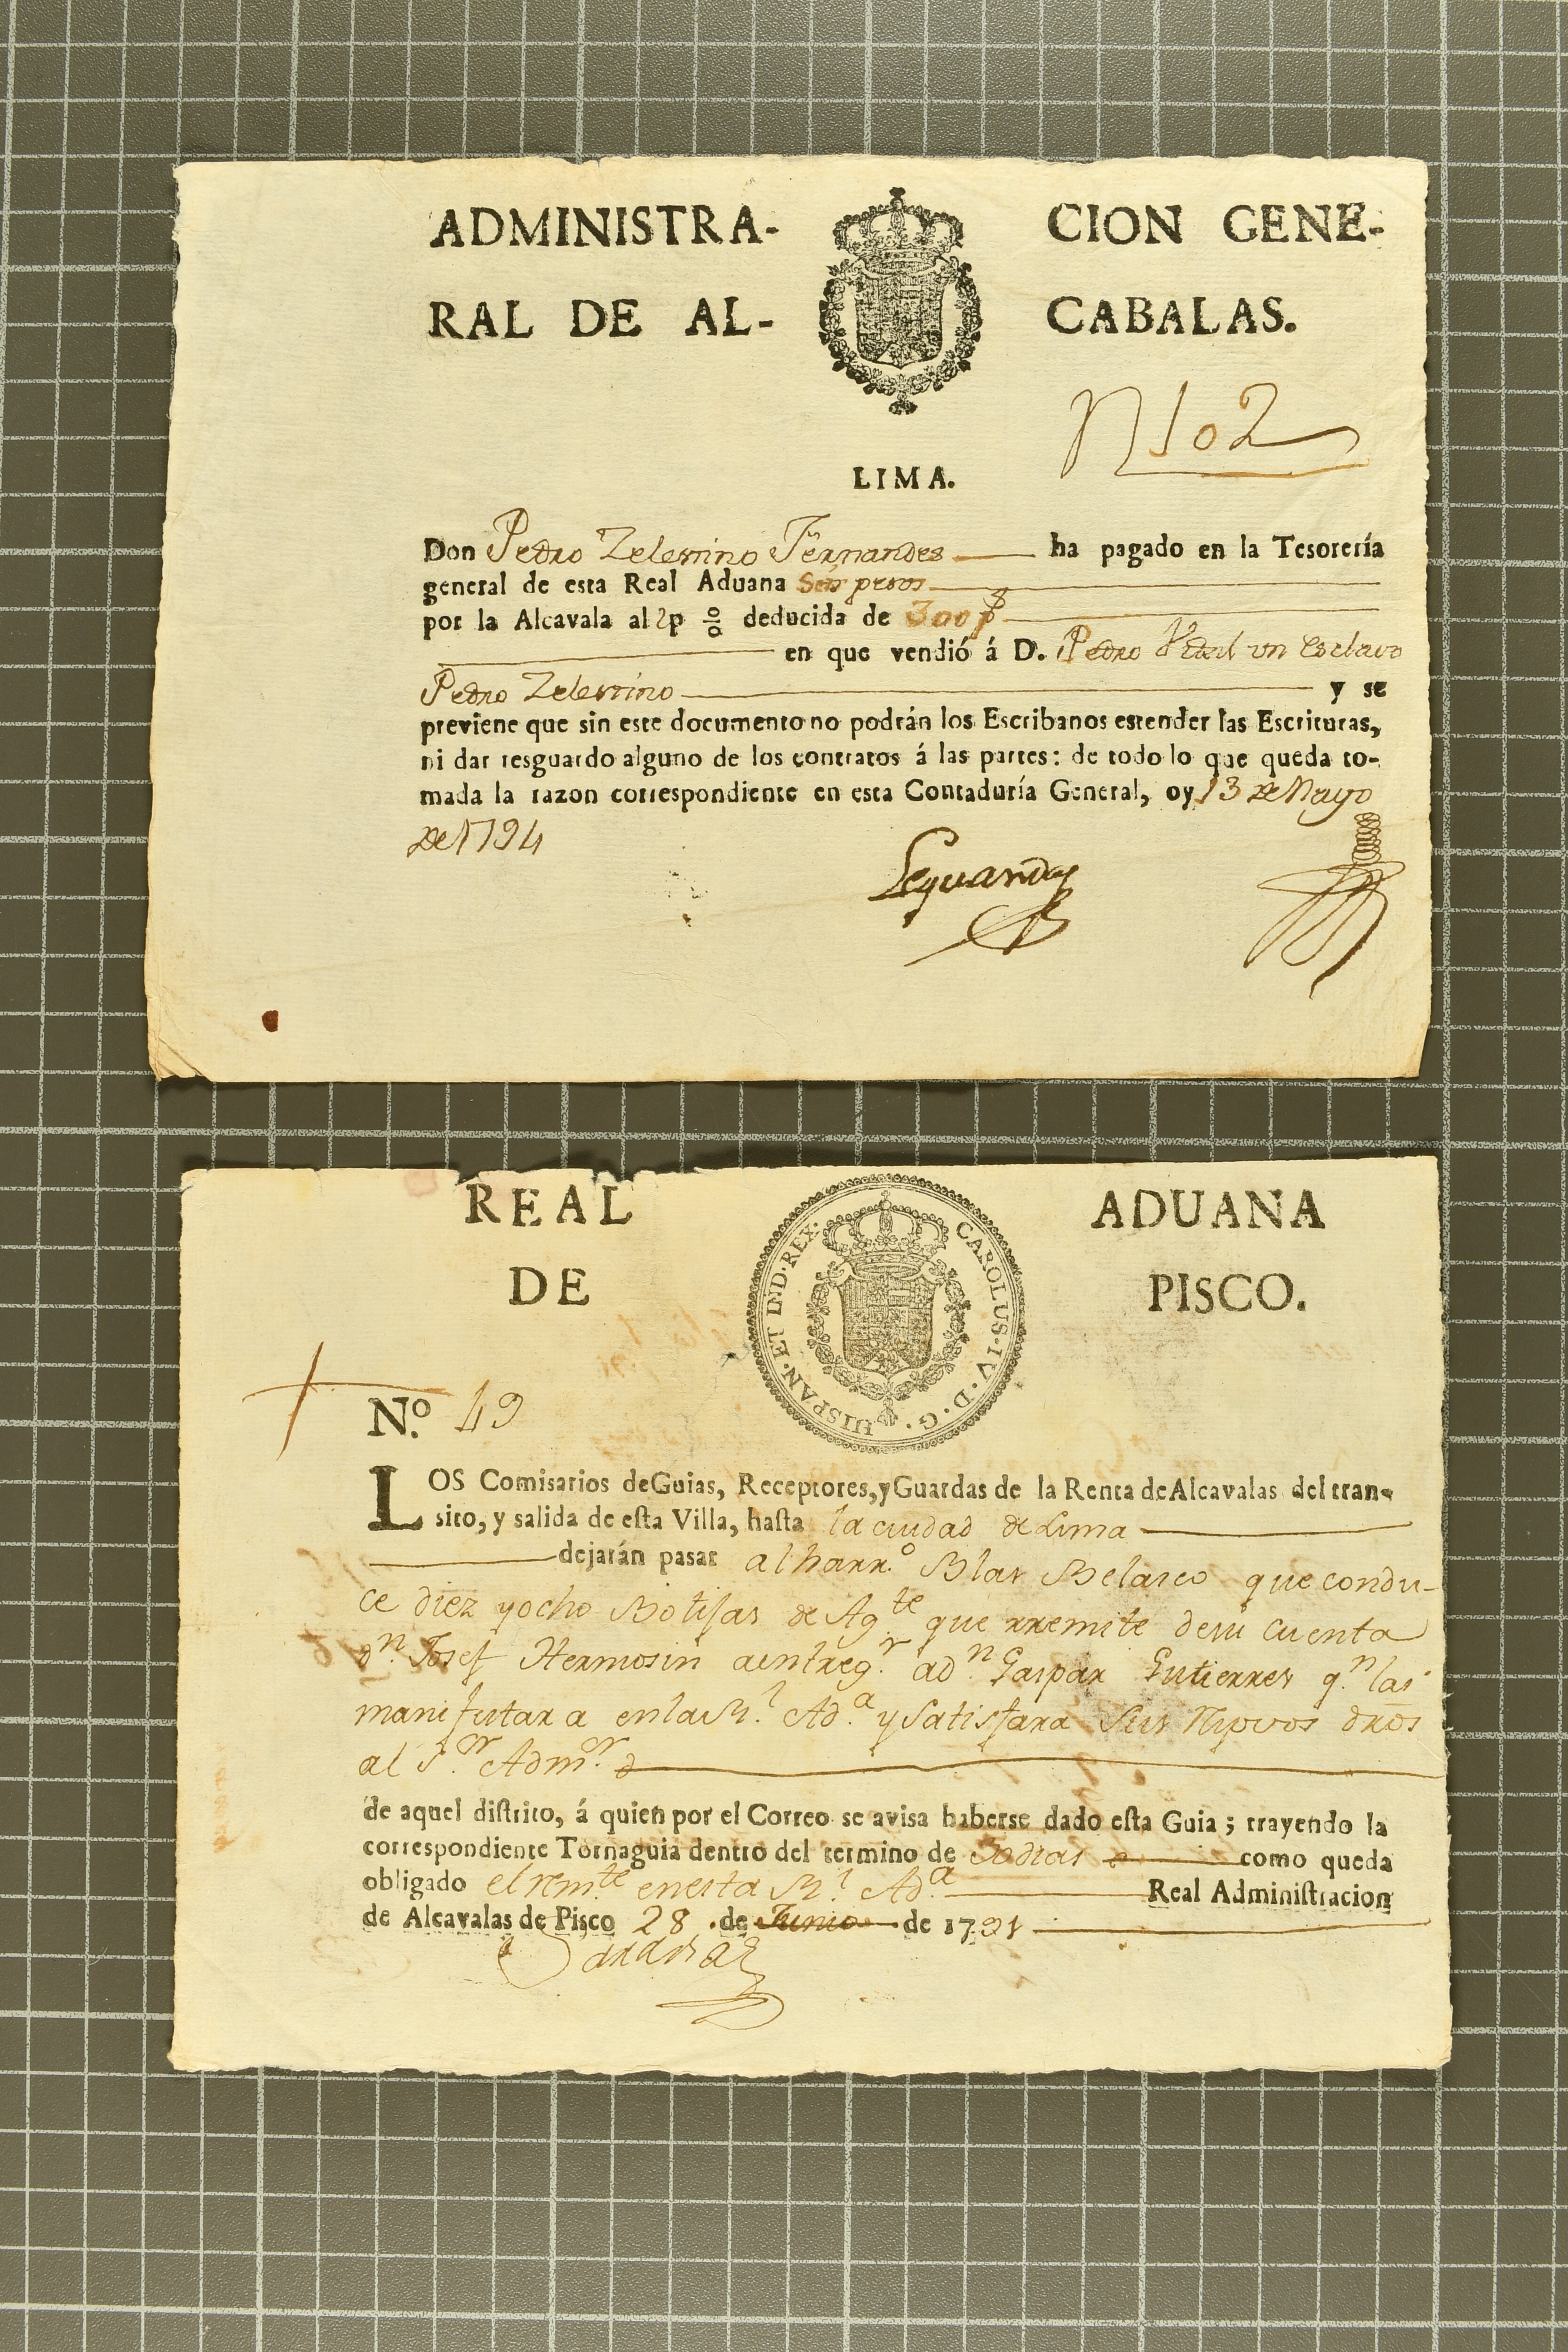 ADMINISTRA- CION GENE-
RAL DE AL- CABALAS.
N 102
LIMA.
Don Pedro Zelestino Fernandes ha pagado en la Tesorería
general de esta Real Aduana Seis pesos
por la Alcavala al 2 p % deducida de 300 p
en que vendió á D. Pedro Vidal un Esclavo
Pedro Zelestino y se
previene que sin este documento no podrán los Escribanos estender las Escrituras,
ni dar resguardo alguno de los contratos á las partes: de todo lo que queda to-
mada la razon correspondiente en esta Contaduría General, oy 13 de Mayo
de 1794
Leguanda
REAL ADUANA
DE PISCO.
CAROLUS·IV·D·G·HISPAN·ET IND·REX·
N.º 49
LOS Comisarios de Guias, Receptores, y Guardas de la Renta de Alcavalas del tran-
sito, y salida de esta Villa, hasta la ciudad de Lima
dejarán pasar al harr.º Blas Belasco que condu-
ce diez y ocho Botijas de Ag.te que rremite desu cuenta
d.n Josef Hermosin aentreg.r ad.n Gaspar Gutierres q.n las
manifestara enla R.l Ad.a y Satisfara Sus Rpvos dros
al S.or Adm.or
de aquel distrito, á quien por el Correo se avisa haberse dado esta Guia; trayendo la
correspondiente Tornaguia dentro del termino de 30 dias como queda
obligado el rem.te enesta R.l Ad.a Real Administracion
de Alcavalas de Pisco 28 de Junio de 1791